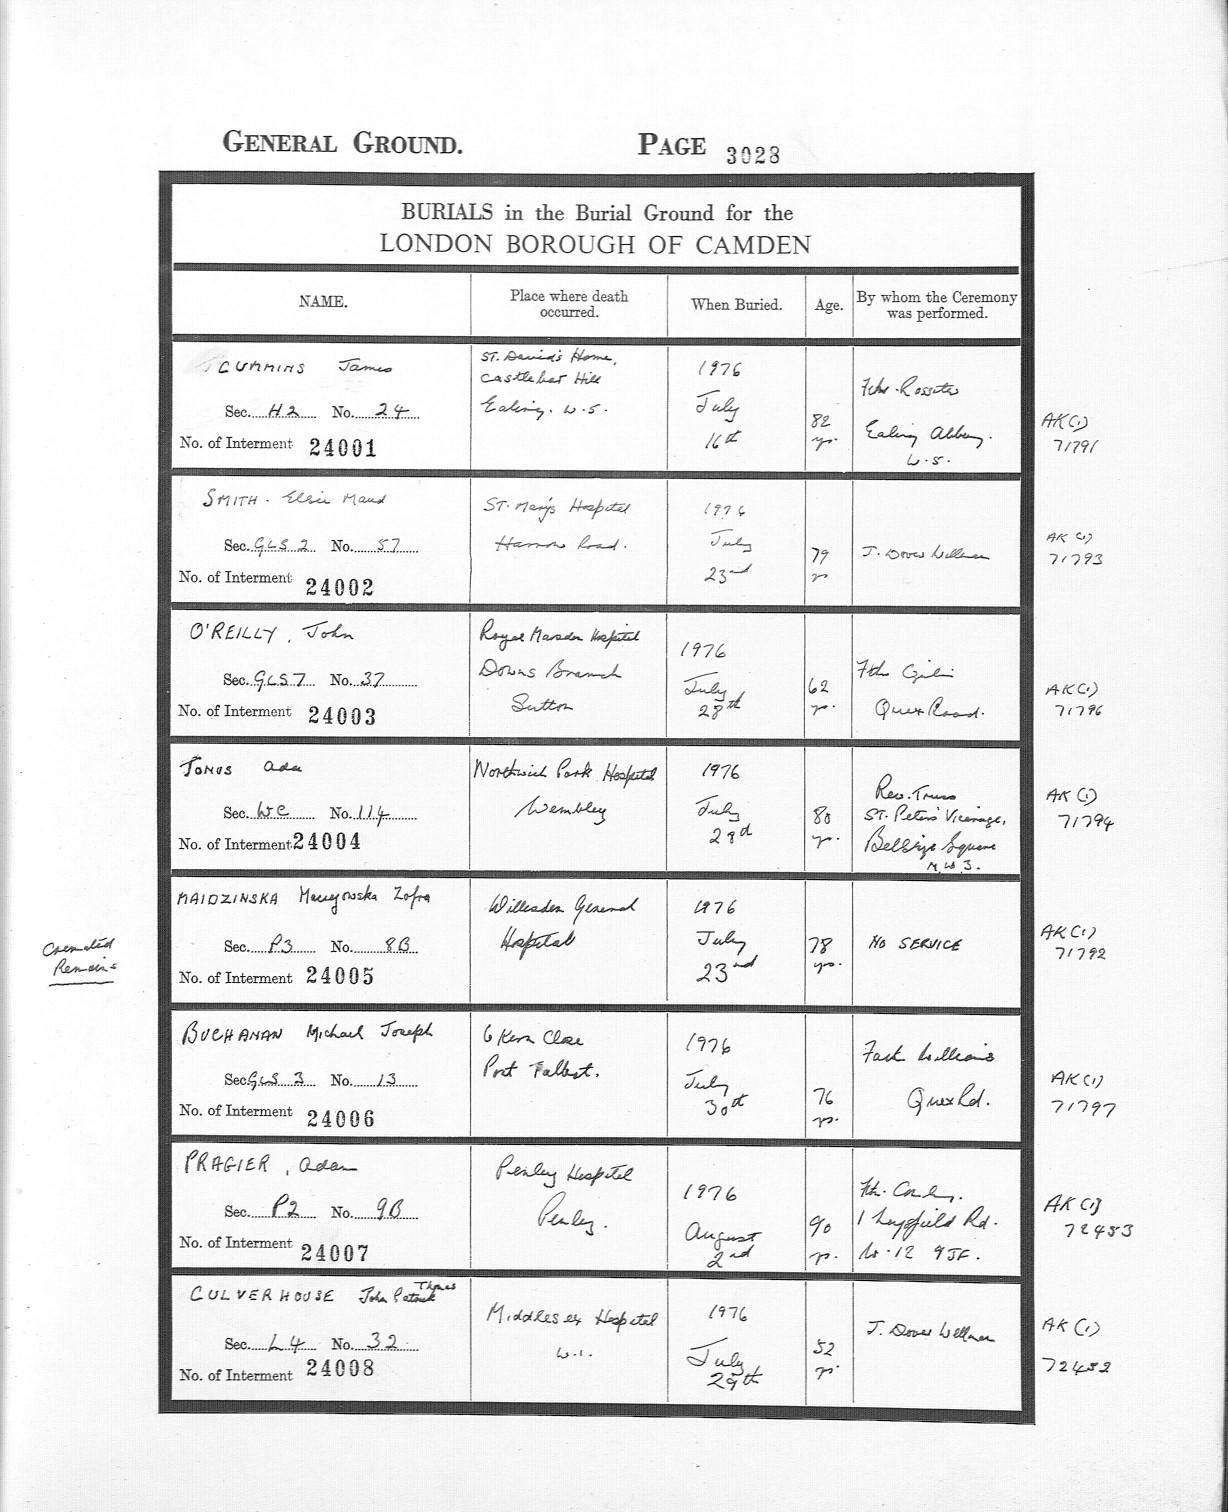 GENERAL GROUND. PAGE 3028
BURIALS in the Burial Ground for the
LONDON BOROUGH OF CAMDEN
NAME.
Place where death
occurred.
When Buried.
Age.
By whom the Ceremony
was performed.
CUMMINS James
Sec. H2 No. 24
No. of Interment 24001
ST. David's Home,
Castlebar Hill
Ealing. W.5.
1976
July
16th
82
yrs.
Fthr. Rossiter
Ealing Abbey.
W.5.
AK(1)
71791
SMITH. Elsie Maud
Sec. GLS 2 No. 57
No. of Interment 24002
ST. Mary's Hospital
Harrow Road.
1976
July
23rd
79
yrs
J. Dover Wellman
AK (1)
71793
O'REILLY, John
Sec. GLS7 No. 37
No. of Interment 24003
Royal Marsden Hospital
Downs Branch
Sutton
1976
July
28th
62
yrs.
Fthr
Quex Road.
AK(1)
71796
JONES Ada
Sec. WC No. 114
No. of Interment 24004
Northwick Park Hospital
Wembley
1976
July
28d
80
yrs.
Rev. Truss
ST. Peters Vicarage,
Belsize Square
N.W.3.
AK(1)
71794
Cremated
Remains
MAIDZINSKA Zofia
Sec. P3 No. 8B
No. of Interment 24005
Willesden General
Hospital
1976
July
23rd
78
yrs.
NO SERVICE
AK(1)
71792
BUCHANAN Michael Joseph
Sec. GLS 3 No. 13
No. of Interment 24006
6 Kern Close
Port Talbot.
1976
July
30th
76
yrs.
Fath Williams
Quex Rd.
AK(1)
71797
PRAGIER, Adam
Sec. P2 No. 9B
No. of Interment 24007
Penley Hospital
Penley.
1976
August
2nd
90
yrs.
Fthr.
1 Leysfield Rd.
W.12 9JF.
AK(1)
72453
CULVERHOUSE John Patrick Thomas
Sec. L4 No. 32
No. of Interment 24008
Middlesex Hospital
W.1.
1976
July
29th
52
yrs
J. Dover Wellman
AK(1)
72452